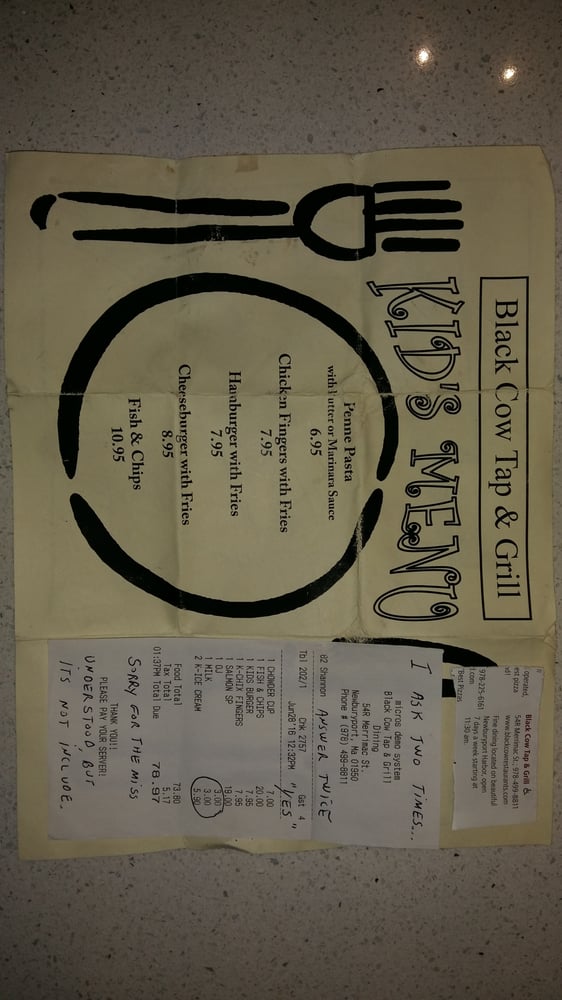 Black Cow Tap & Grill
KID'S MENU
Penne Pasta
with Butter or Marinara Sauce
6.95
Chicken Fingers with Fries
7.95
Hamburger with Fries
7.95
Cheeseburger with Fries
8.95
Fish & Chips
10.95
operated,
est pizza
978-225-6161
t.com
"Best Pizzas
Black Cow Tap & Grill
54R Merrimac St., 978-499-8811
www.blackcowrestaurants.com
Fine dining located on beautiful
Newburyport Harbor, open
7 days a week starting at
11:30 am.
I ASK TWO TIMES...
micros demo system
Black Cow Tap & Grill
Dining
54R Merrimac St.
Newburyport, Ma 01950
Phone # (978) 499-8811
82 Shannon
ANSWER TWICE
Tbl 202/1 Chk 2757 Gst 4
Jun28'16 12:32PM
"YES"
1 CHOWDER CUP 7.00
1 FISH & CHIPS 20.00
1 KIDS BURGER 7.95
1 K-CHIX FINGERS 7.95
1 SALMON SP 19.00
1 OJ 3.00
1 MILK 3.00
2 K-ICE CREAM 5.90
Food Total 73.80
Tax Total 5.17
01:37PM Total Due 78.97
SORRY FOR THE MISS
THANK YOU!!
PLEASE PAY YOUR SERVER!
UNDERSTOOD, BUT
ITS NOT INCLUDE.